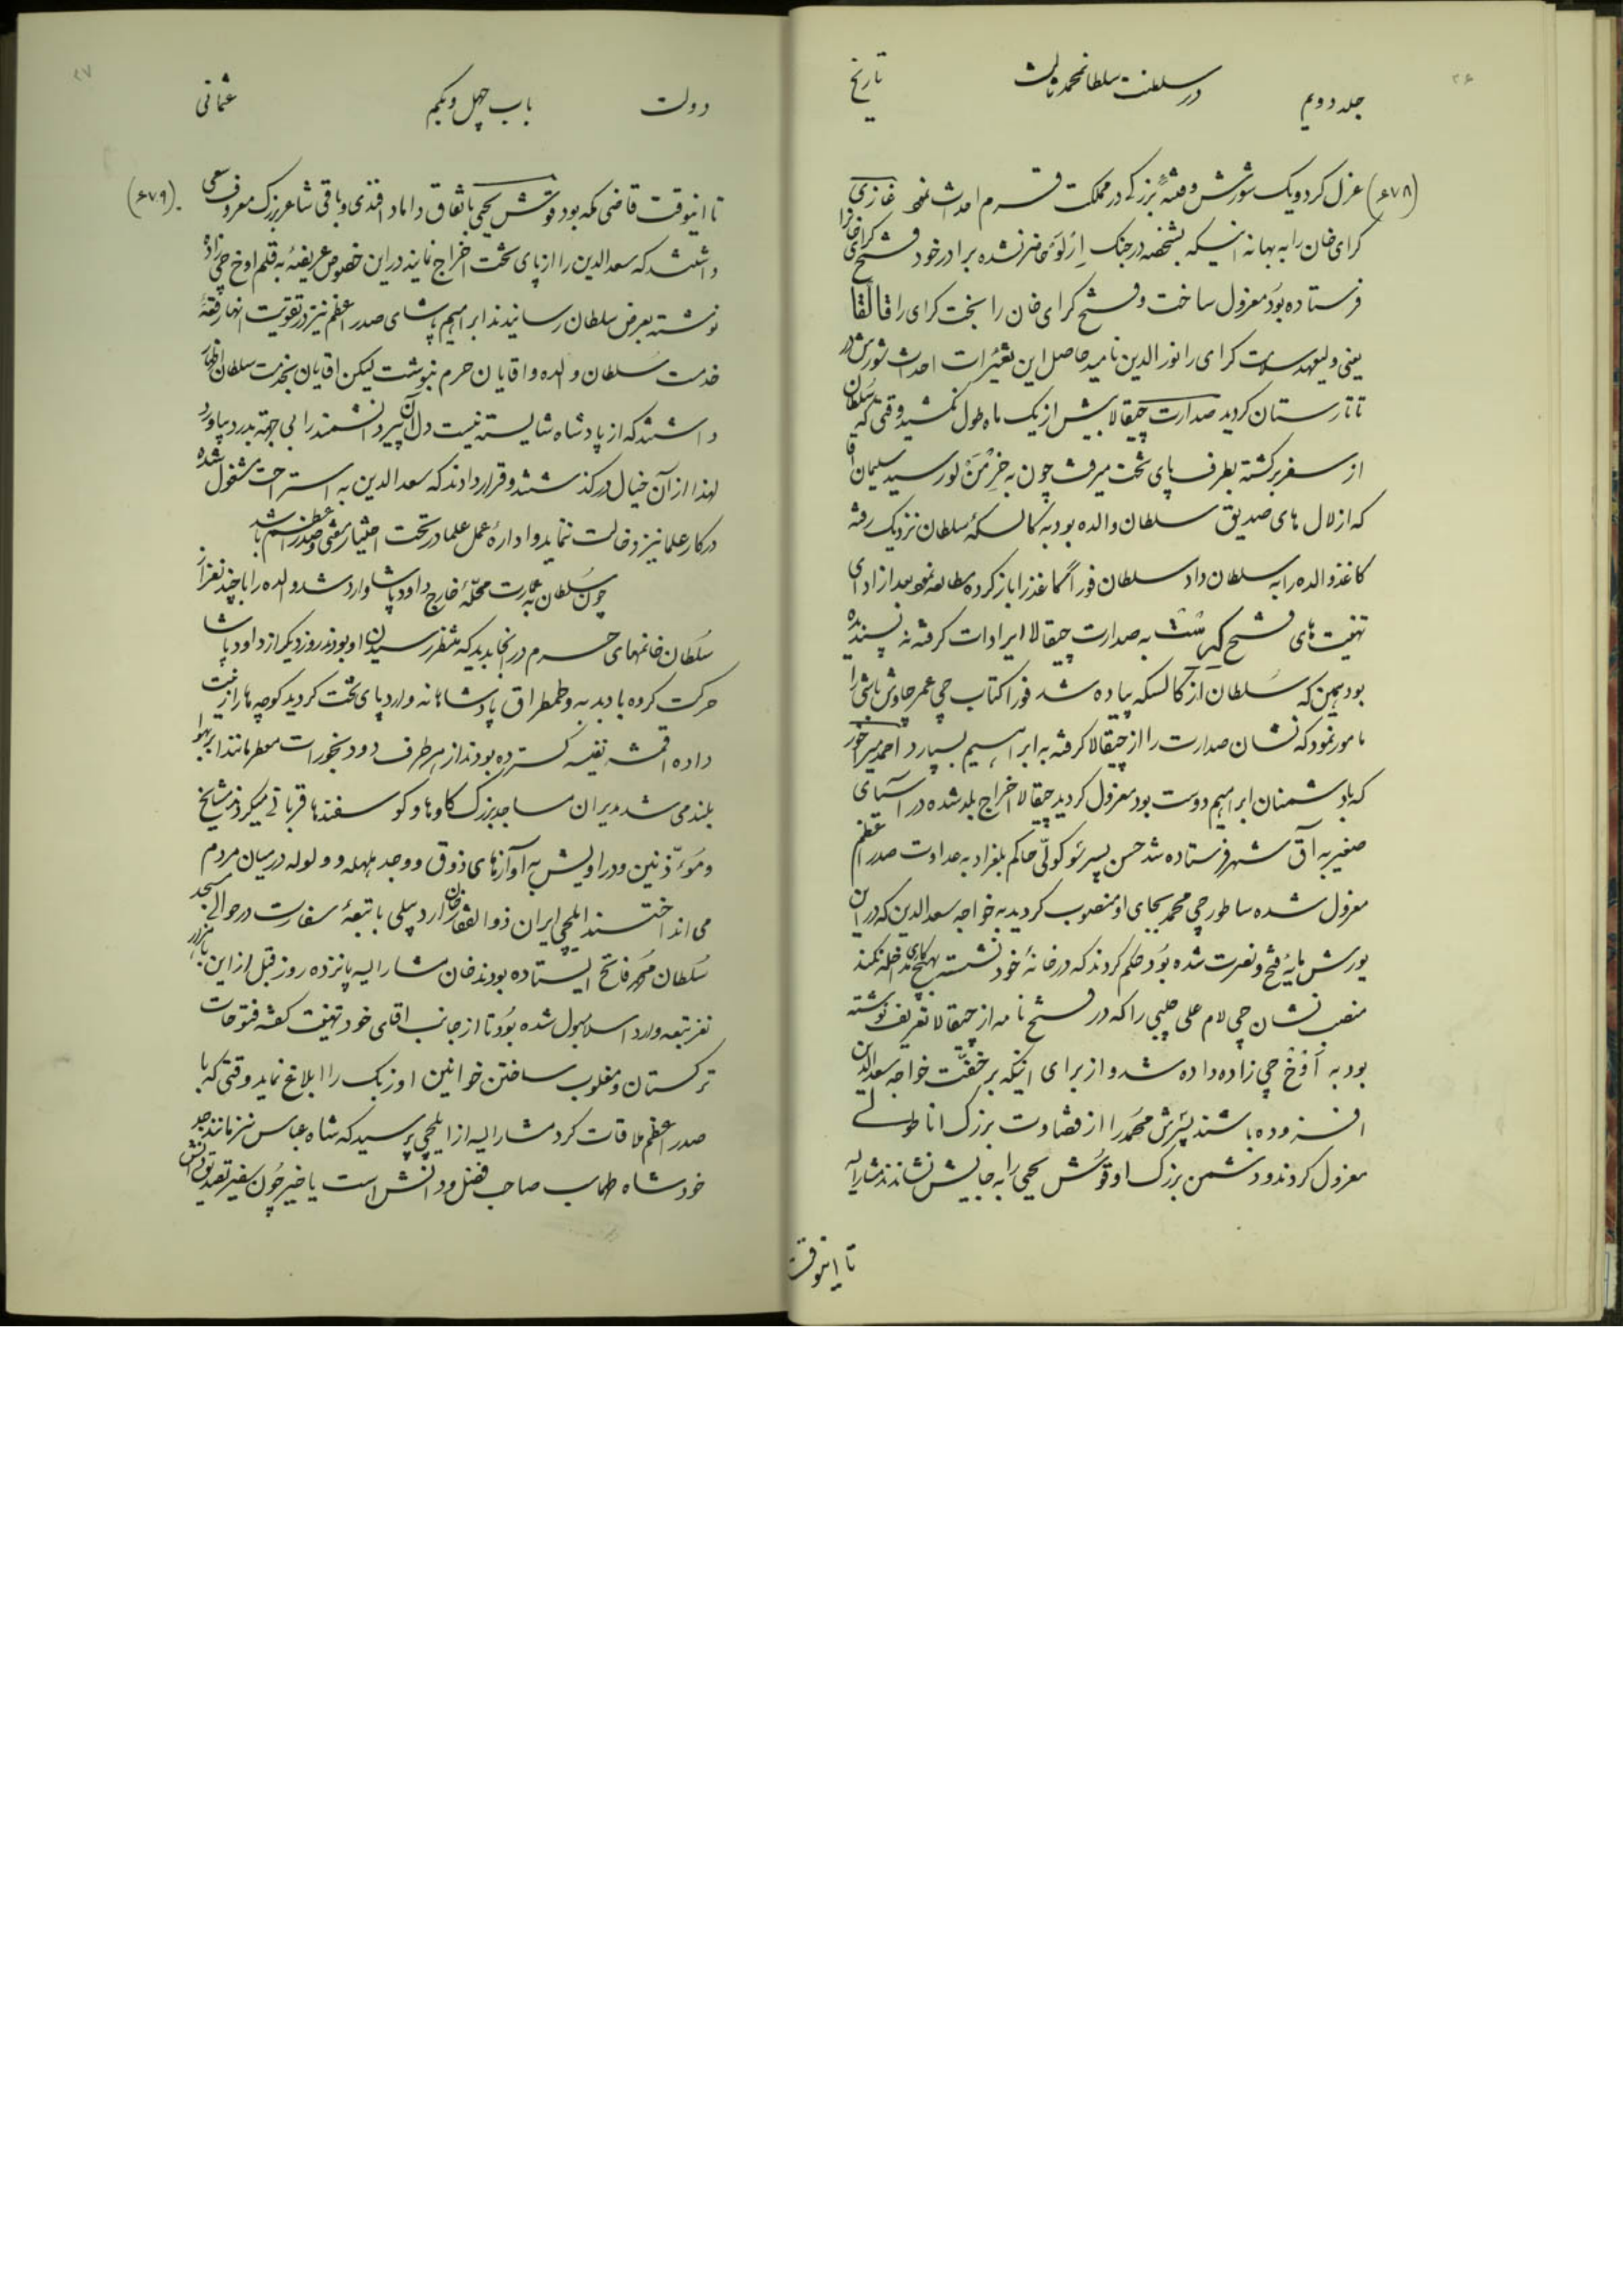 ۲۶
جلد دویم
در سلطنت سلطانمحمد ثالث
تاریخ
(۶۷۸) عزل کرد ویک شورش وفتنهٔ بزرکے در مملکت قرم احداث نمود غازی
کرای خان را به بهانه اینیکه بشخصه در جنک اِرْلَوْ حاضر نشده برادر خود فتح کرای خانرا
فرستاده بوُد معزول ساخت وفتح کرای خان را بخت کرای را قالْقا
یعنی ولیعهد سلامت کرای را نورالدین نامید حاصل این تغییرات احداث شورش در
تاتارستان کردید صدارت چیقالا بیش از یک ماه طول نکشید وقتی که سُلطان
از سفر برکشته بطرف پای تخت میرفت چون به خِرْمَنْ لو رسید سلیمان آقا
که از لالهای صدیق سلطان والده بود به کالسکهٔ سلطان نزدیک رفته
کاغذ والده را به سلطان داد سلطان فوراً کاغذ را باز کرده مطالعه نمود بعد از ادای
تهنیت های فتح کِرِسْتِشْ به صدارت چیقالا ایرادات کرفته نه پسندیده
بود همین که سُلطان از کالسکه پیاده شد فوراً کتاب چی عمر چاوش باشی را
مامور نمود که نشان صدارت را از چیقالا کرفته به ابراهیم بسپارد احمد میرآخور
که با دشمنان ابراهیم دوست بود معزول کردید چیقالا اخراج بلد شده در آسیای
صغیر به آق شهر فرستاده شد حسن پسر سُوکولّی حاکم بلغراد به عداوت صدر اعظم
معزول شده ساطورچی محمد بجای او منصوب کردید به خواجه سعدالدین که در این
یورش مایهٔ فتح ونصرت شده بوُد حکم کردند که در خانهٔ خود نشسته بهیچ کاری مداخله نکند
منصب نشان چی لام علی چلبی را که در فتح نامه از چیقالا تعریف نوشته
بود به اُوُخ چی زاده داده شد و از برای اینکه بر خفّت خواجه سعدالدین
افزوده باشند پسَرش محمّد را از قضاوت بزرک اناطولے
معزول کردند ودشمن بزرک او قوُش یحیی را به جایش نشاندند مشارالیه
تا اینوقت
۲۷
دولت
باب چهل ویکم
عثمانی
تا اینوقت قاضی مکه بود قوش یحیی باتفاق داماد افندی وباقی شاعر بزرک معروف سعی (۶۷۹)
داشتند که سعدالدین را از پای تخت اخراج نمایند در این خصوص عریضهٔ به قلم اوخ چی زاده
نوشته بعرض سلطان رسانیدند ابراهیم پاشای صدر اعظم نیز در تقویت انها رقعهٔ
خدمت سُلطان والده واقایان حرم نبوشت لیکن اقایان بخدمت سلطان اظهار
داشتند که از پادشاه شایسته نیست دل آن پیر دانشمند را بی جهة بدرد بیاورد
لهذا از آن خیال درکذشتند وقرار دادند که سعدالدین به استراحت مشغول شده
در کار علما نیز دخالت ننماید و ادارهٔ عمل علما در تحت اختیار مفتی وصدر اعظم باشد
چون سُلطان به عمارت محلّهٔ خارج داود پاشا وارد شد والده را با چند نفر از
سُلطان خانمهای حرم در آنجا بدید که منتظر رسیدن او بودند روز دیکر از داود پاشا
حرکت کرده با دبدبه وطمطراق پادشاهانه وارد پای تخت کردید کوچه ها را زینت
داده اقمشه نفیسه کسترده بودند از هر طرف دود بخورات معطر مانند ابر بهوا
بلند می شد مدیران مساجد بزرک کاوها وکوسفندها قربانے میکردند مشایخ
ومُوءَذّنین ودراویش به آوازهای ذوق ووجد هلهله وولوله در میان مردم
می انداختند ایلچی ایران ذوالفقار خان اردبیلی با تبعهٔ سفارت در حوالے مسجد
سُلطان محمّد فاتح ایستاده بودند خان مشارالیه پانزده روز قبل از این با هزار
نفر تبعه وارد اسلامبول شده بوُد تا از جانب اقای خود تهنیت کفته فتوحات
ترکستان ومغلوب ساختن خوانین اوزبک را ابلاغ نماید وقتی که با
صدر اعظم ملاقات کرد مشارالیه از ایلچی پرسید که شاه عباس نیز مانند جد
خود شاه طهماسب صاحب فضل ودانش است یا خیر چُون سفیر تصدیق دانش